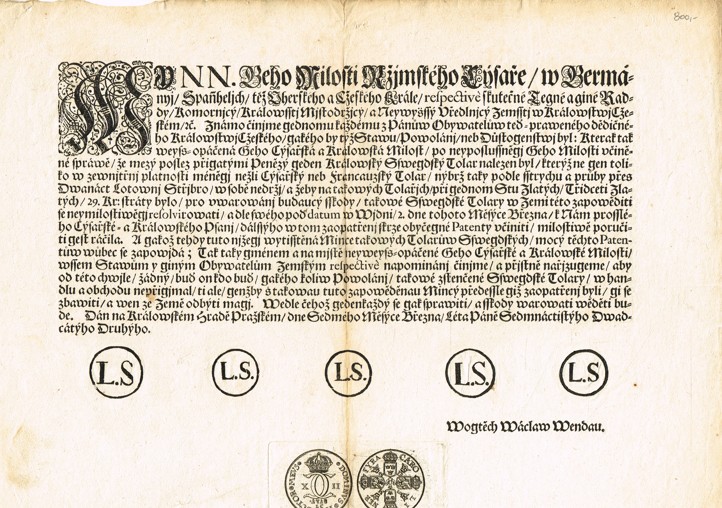 800,-
MY NN. Geho Milosti Ržjmského Cýsaře / w Germá-
nyj / Spaňhelých / též Vherského a Cžeského Krále / respectivè skutečné Tegné a giné Rad-
dy / Komornjcy / Králowsstj Mjstodržjcý / a Neywyšssý Vředlnjcý Zemsstj w Králowstwj Cže-
ském / ꝛc. Známo činjme gednomu každému z Pánůw Obywatelůw teď-praweného dědičné-
ho Králowstwj Cžeského / gakého by týž Stawu / Powolánj / neb Důstogenstwj byl: Kterak tak
weyss-opáčená Geho Cýsařská a Králowská Milost / po neyposlussněgj Geho Milosti včině-
né spráwě / že mezy poslez přigatými Penězy geden Králowský Sswegdský Tolar nalezen byl / kterýž ne gen toli-
ko w zewnjtřnj platnosti méněgj nežli Cýsařský neb Francauzský Tolar / nýbrž taky podle sstrychu a průby přes
Dwanáct Lotownj Střjbro / w sobě nedržj / a žeby na takowých Tolařjch / při gednom Stu Zlatých / Třidceti Zla-
tých / 29. Kr: stráty bylo / pro vwarowánj budaucý sskody / takowé Sswegdské Tolary w Zemi této zapowěditi
se neymilostiwěgj resolvirowati / a dle swého pod datum w Wjdni / 2. dne tohoto Měsýce Března / k Nám prossle-
ho Cýsařské- a Králowského Psanj / dalssýho w tom zaopatřenj skrze obyčegné Patenty včiniti / milostiwě poruči-
ti gest ráčila. A gakož tehdy tuto njžegj wytisstěná Mince takowých Tolarůw Sswegdských / mocý těchto Paten-
tůw wůbec se zapowjdá; Tak taky gménem a na mjstě neyweyss-opáčené Geho Cýsařské a Králowské Milosti /
wssem Stawům y giným Obywatelům Zemským respectivè napomenánj činjme / a přjstně nařizugeme / aby
od této chwjle / žádný / buď on kdo buď / gakéhož koliw Powolánj / takowé zlehčené Sswegdské Tolary / w han-
dlu a obchodu nepřigjmal / ti ale / genžby s takowau tuto zapowěděnau Mincý předessle giž zaopatřenj byli / gi se
zbawiti / a wen ze Země odbýti magj. Wedle čehož gedenkaždý se gak sprawiti / a sskody warowati wěděti bu-
de. Dán na Králowském Hradě Pražském / dne Sedmého Měsýce Března / Léta Páně Sedmnáctistýho Dwad-
cátýho Druhýho.
L.S L.S. L.S. L.S. L.S
Wogtěch Wáclaw Wendau.
DOMINVS